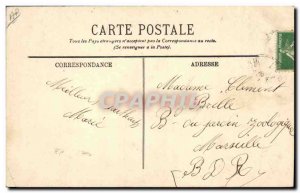 CARTE POSTALE
Tous les Pays étrangers n'acceptent pas la Correspondance au recto.
(Se renseigner à la Poste).
CORRESPONDANCE
ADRESSE
Meilleur
Marie
Madame Clément
Belle
B du jardin zoologique
Marseille
B D R
CARTORUM